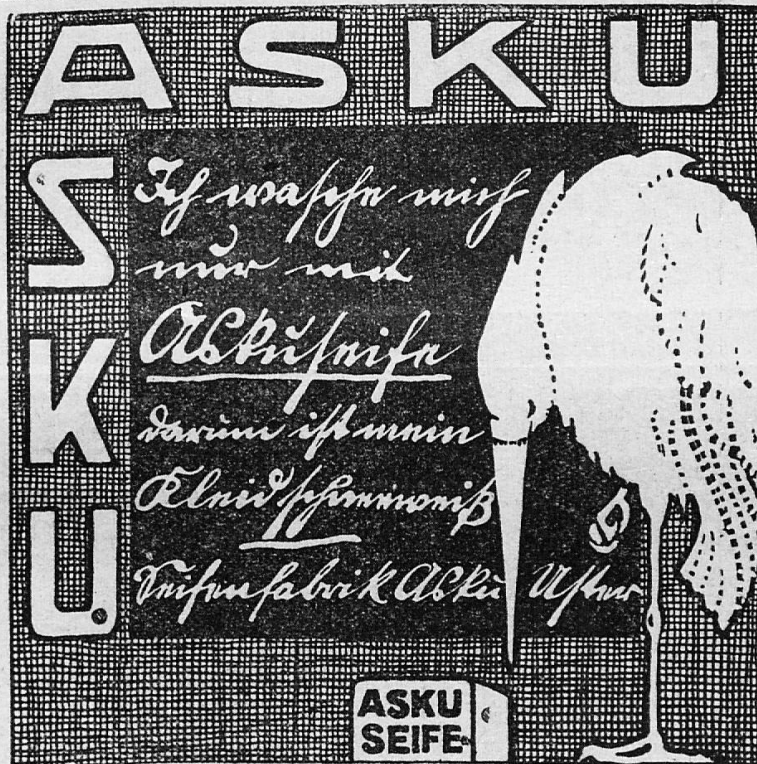 ASKU
ASKU
Ich wasche mich
nur mit
Askuseife
darum ist mein
Kleid schneeweiß
Seifenfabrik Asku Uster
ASKU
SEIFE